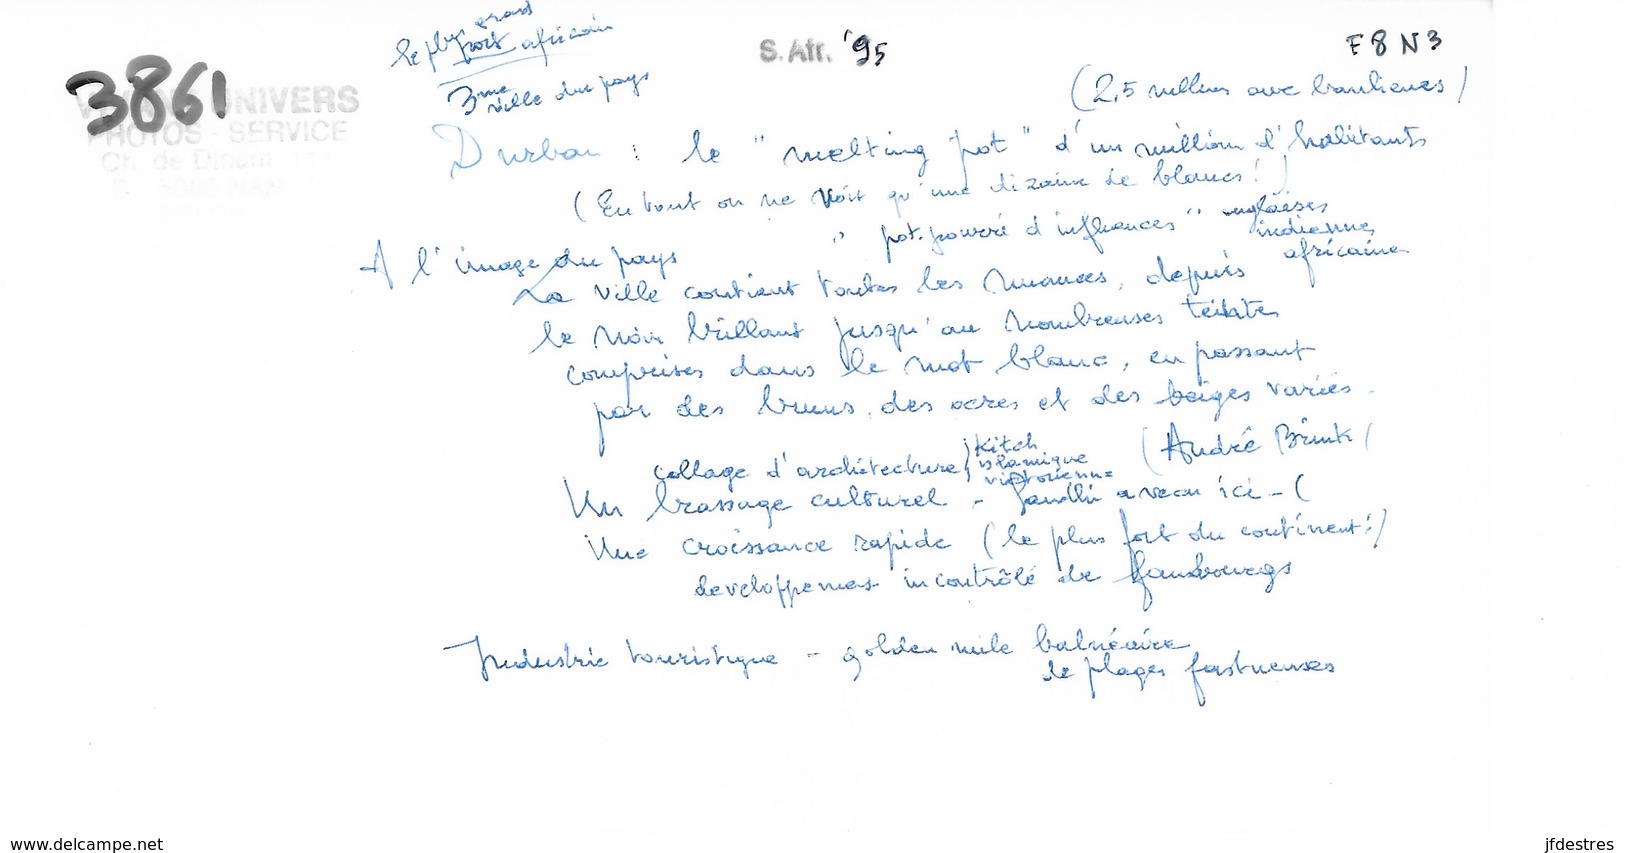 le plus grand
port africain
S. Afr. '95
F8N3
3861
UNIVERS
PHOTOS - SERVICE
Ch. de Dinant
3ème ville du pays
(2,5 millions avec banlieues)
Durban : le "melting pot" d'un million d'habitants
(En tout on ne voit qu'une dizaine de blancs!)
"pot-pourri d'influences" anglaises
indiennes
africaine
A l'image du pays
La ville contient toutes les nuances, depuis
le noir brillant jusqu'au nombreuses teintes
comprises dans le mot blanc, en passant
par des bruns, des ocres et des beiges variés.
(André Brink)
collage d'architecture kitch
islamique
victorienne
Un brassage culturel - Gandhi avocat ici - (
Une croissance rapide (le plus fort du continent!)
développement incontrôlé de faubourgs
Industrie touristique - golden mile balnéaire
de plages fastueuses
www.delcampe.net
jfdestres